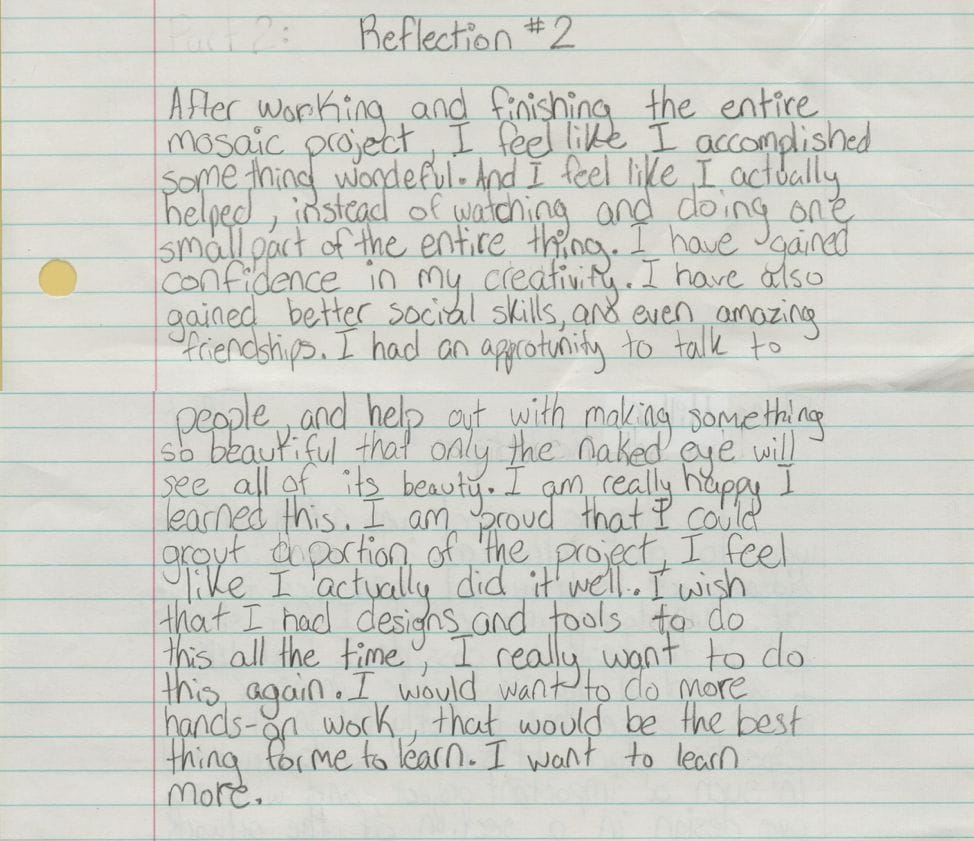 Reflection #2
After working and finishing the entire
mosaic project, I feel like I accomplished
something wondeful. And I feel like I actually
helped, instead of watching and doing one
small part of the entire thing. I have gained
confidence in my creativity. I have also
gained better social skills, and even amazing
friendships. I had an approtunity to talk to
people, and help out with making something
so beautiful that only the naked eye will
see all of its beauty. I am really happy I
learned this. I am proud that I could
grout portion of the project, I feel
like I actually did it well. I wish
that I had designs and tools to do
this all the time, I really want to do
this again. I would want to do more
hands-on work, that would be the best
thing for me to learn. I want to learn
more.